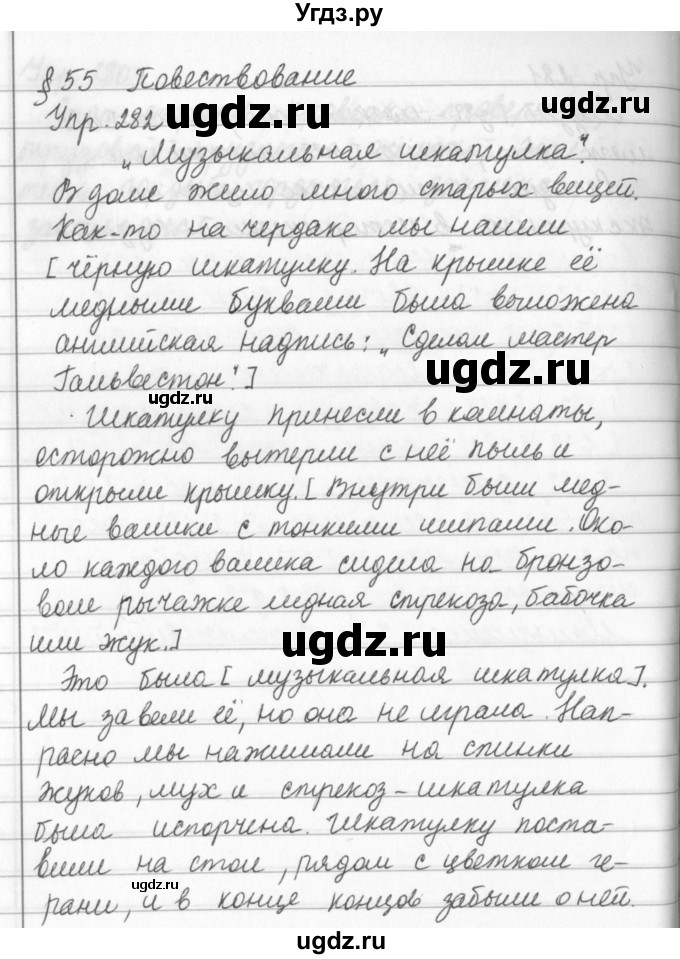 Угдз.ру
§ 55 Повествование
Упр. 282
ugdz.ru
„Музыкальная шкатулка".
В доме жило много старых вещей.
Как-то на чердаке мы нашли
[чёрную шкатулку. На крышке её
медными буквами была выложена
английская надпись: „Сделал мастер
ugdz.ru
Гальвестон".]
Шкатулку принесли в комнаты,
осторожно вытерли с неё пыль и
открыли крышку. [Внутри были мед-
ные валики с тонкими шипами. Око-
ло каждого валика сидела на бронзо-
вом рычажке медная стрекоза, бабочка
или жук.]
ugdz.ru
Это была [музыкальная шкатулка].
Мы завели её, но она не играла. Нап-
расно мы нажимали на спинки
жуков, мух и стрекоз - шкатулка
была испорчена. Шкатулку поста-
вили на стол, рядом с цветком ге-
ugdz.ru
рани, и в конце концов забыли о ней.
ugdz.ru